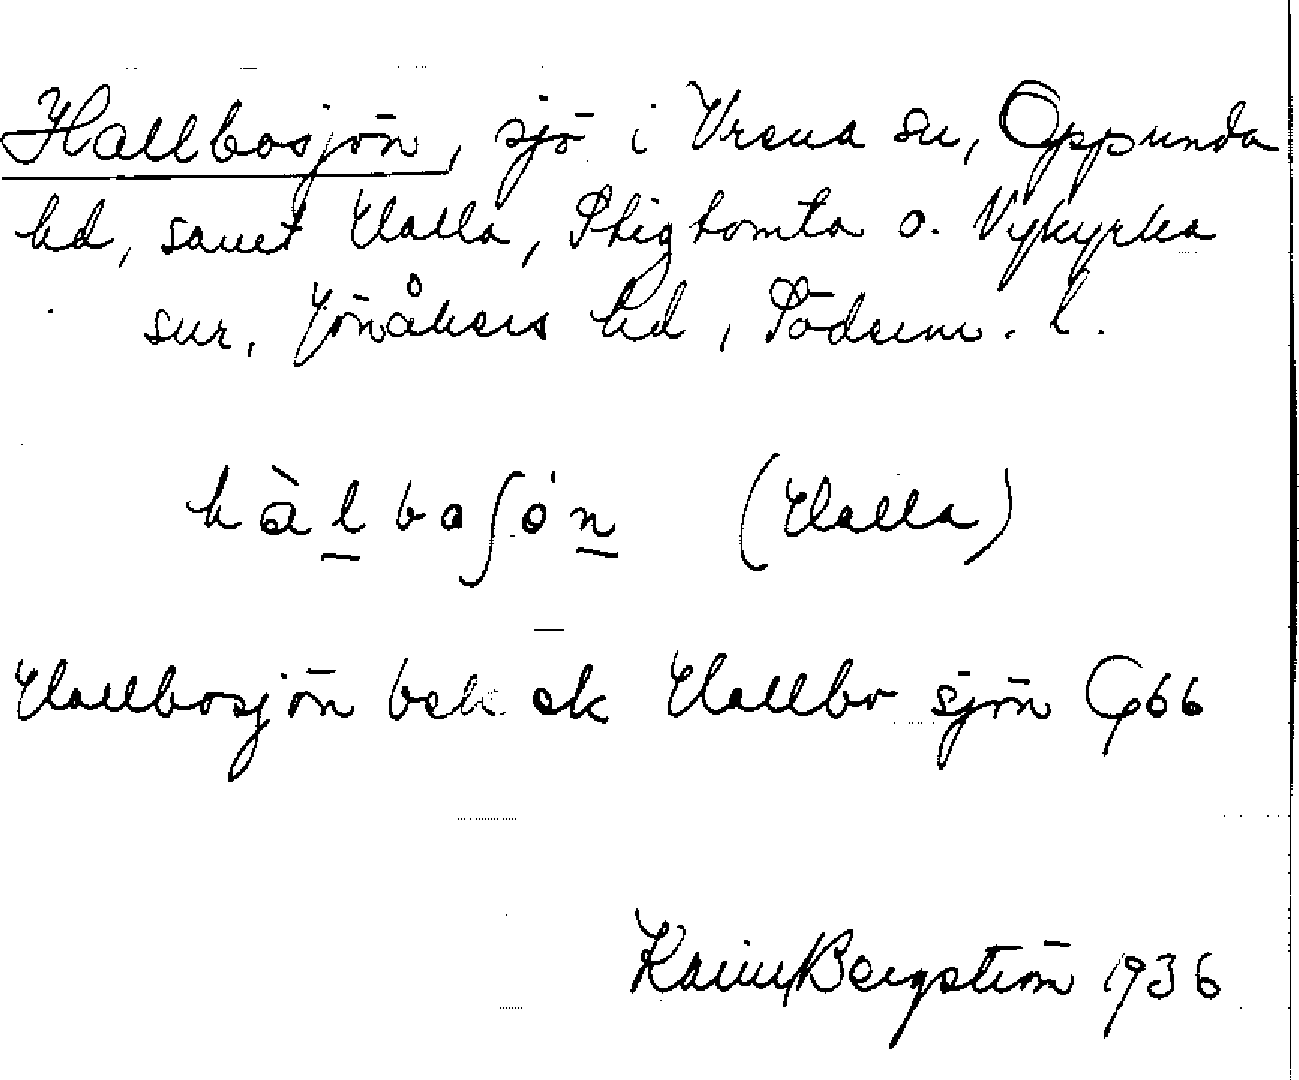 Hallbosjön, sjö i Vrena sn, Oppunda
hd, samt Halla, Stigtomta o. Nykyrka
snr, Jönåkers hd, Söderm. l.
hàlboʃón (Halla)
Hallbosjön bek ek Hallbo sjön G66
Karin Bergström 1936